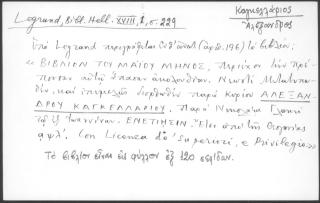 Legrand, Bibl. Hell. XVIII, 1, σ. 229
Καγκελλάριος
Ἀλέξανδρος
Ὑπὸ Legrand περιγράφεται (ἀριθ. 196) τὸ βιβλίον:
« ΒΙΒΛΙΟΝ ΤΟΥ ΜΑΪΟΥ ΜΗΝΟΣ, Περιέχον τὴν πρέ-
πουσαν αὐτῷ ἅπασαν ἀκολουθίαν. Νεωστὶ Μετατυπω-
θὲν, καὶ ἐπιμελῶς διορθωθὲν παρὰ κυρίου ΑΛΕΞΑΝ-
ΔΡΟΥ ΚΑΓΚΕΛΛΑΡΙΟΥ. Παρὰ Νικολάῳ Γλυκεῖ
τῷ ἐξ Ἰωαννίνων. ΕΝΕΤΙΗΣΙΝ. Ἔτει ἀπὸ τῆς Θεογονίας
Con Licenza de' Superiori, e Privilegio »
Τὸ βιβλίον εἶναι εἰς φύλλον ἐξ 120 σελίδων.